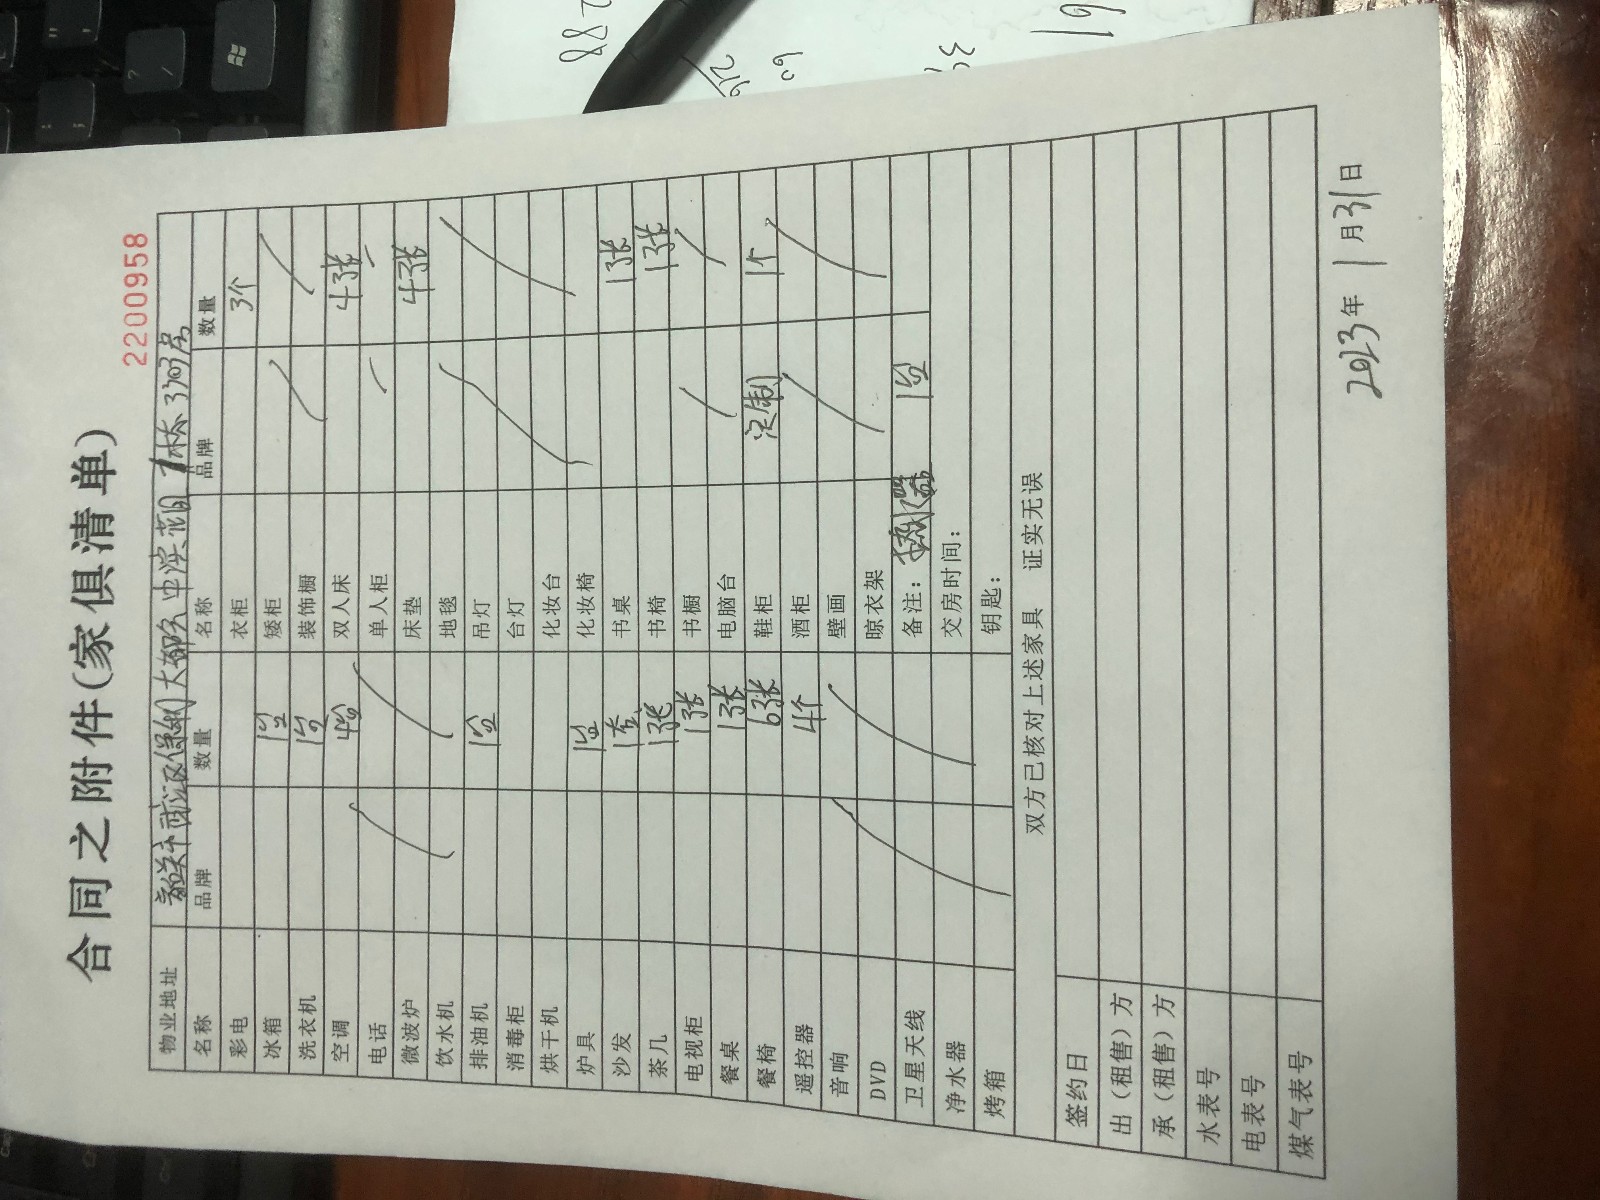 合同之附件(家俱清单)
2200958
物业地址 韶关市浈江区保利大都会中滨花园 1栋 3303房
名称 品牌 数量 名称 品牌 数量
彩电 衣柜 3个
冰箱 1台 矮柜
洗衣机 1台 装饰橱
空调 4台 双人床 4张
电话 单人柜
微波炉 床垫 4张
饮水机 地毯
排油机 1台 吊灯
消毒柜 台灯
烘干机 化妆台
炉具 1台 化妆椅
沙发 1套 书桌 1张
茶几 1张 书椅 1张
电视柜 1张 书橱
餐桌 1张 电脑台
餐椅 6张 鞋柜 定制 1个
遥控器 4个 酒柜
音响 壁画
DVD 晾衣架
卫星天线 备注: 热水器 1台
净水器 交房时间:
烤箱 钥匙:
双方已核对上述家具 证实无误
签约日
出（租售）方
承（租售）方
水表号
电表号
煤气表号
2023年 1月31日